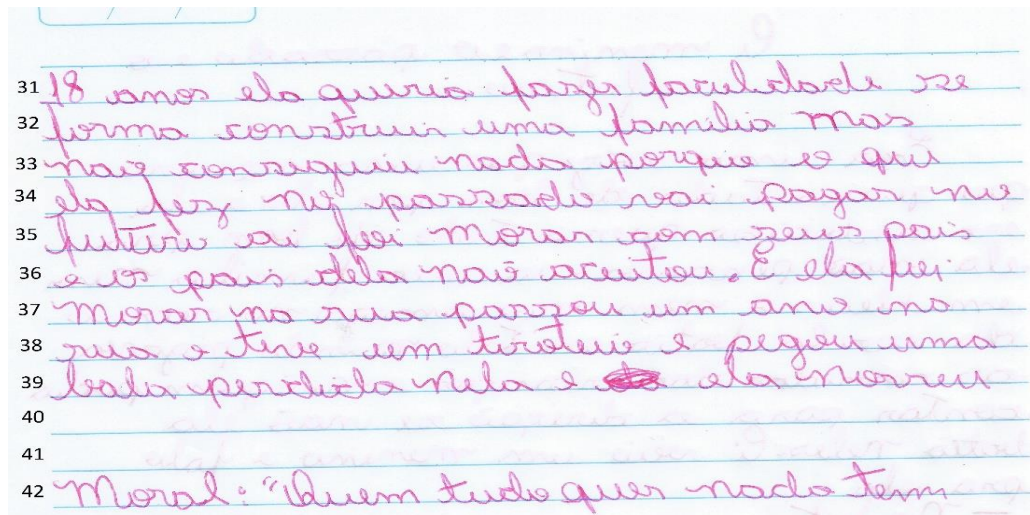 31 18 anos ela queria fazer faculdade se
32 forma construir uma familia mas
33 não conseguiu nada porque o qui
34 ela fez no passado vai pagar no
35 futuro ai foi morar com seus pais
36 e os pais dela não aceitou. E ela foi
37 morar na rua passou um ano na
38 rua e teve um tiroteio e pegou uma
39 bala perdida nela e ela morreu
40
41
42 Moral: "Quem tudo quer nada tem